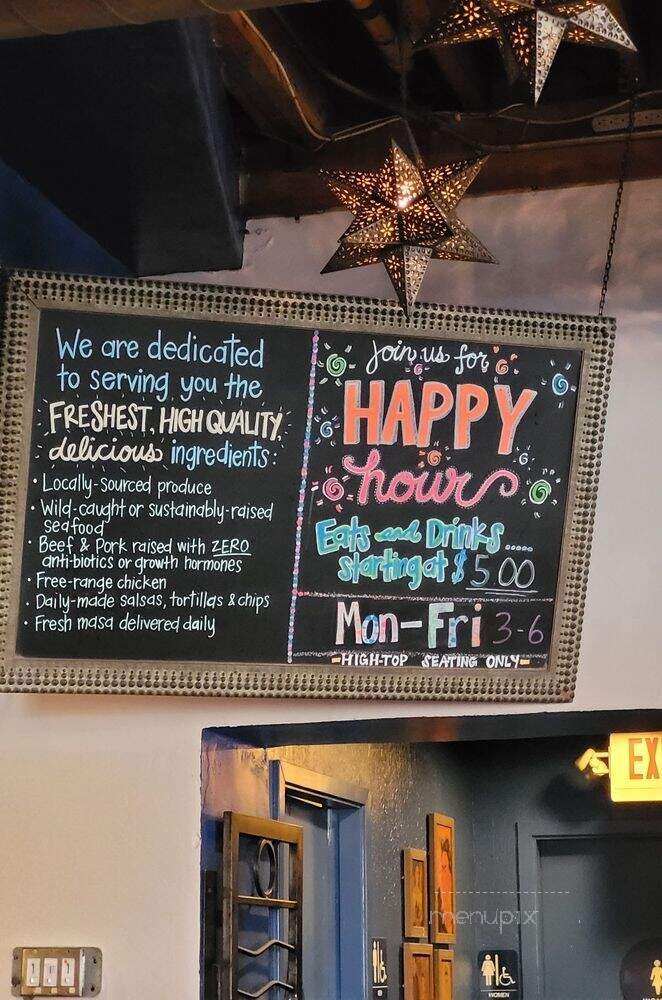 We are dedicated
to serving you the
FRESHEST, HIGH QUALITY,
delicious ingredients:
• Locally-sourced produce
• Wild-caught or sustainably-raised
seafood
• Beef & Pork raised with ZERO
anti-biotics or growth hormones
• Free-range chicken
• Daily-made salsas, tortillas & chips
• Fresh masa delivered daily
Join us for
HAPPY
hour
Eats and Drinks.....
starting at $5.00
Mon-Fri 3-6
-HIGH-TOP SEATING ONLY-
EX
menupix
WOMEN